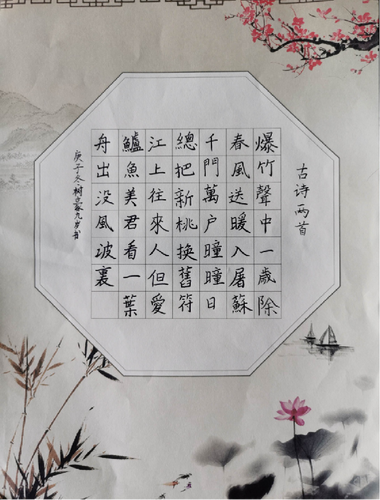 古诗两首
爆竹聲中一歲除
春風送暖入屠蘇
千門萬户瞳瞳日
總把新桃換舊符
江上往來人但愛
鱸魚美君看一葉
舟出没風波裏
庚子冬九岁书